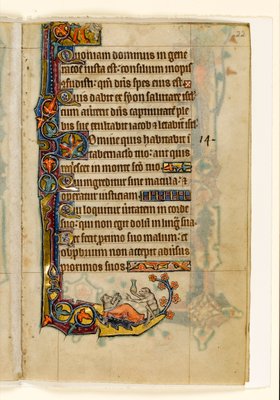 22
Quoniam dominus in gene
racōne iusta est: consilium inopis
ꝯfudisti: qm̄ dn̄s spes eius est
Quis dabit ex syon salutare isrl̄:
cum auert̄it dn̄s captiuitatē ple
bis sue exultabit iacob ⁊ letabit̄ isrl̄.
Domine quis habitabit ī
tabernac̄lo tuo: aut quis
req̄escet in monte sc̄o tuo
Qui ingreditur sine macula: ⁊
operatur iusticiam
Qui loquitur ūitatem in corde
suo: qui non egit dolū in lingua sua.
Nec fecit proximo suo malum: et
obprobrium non accepit aduersus
proximos suos
14